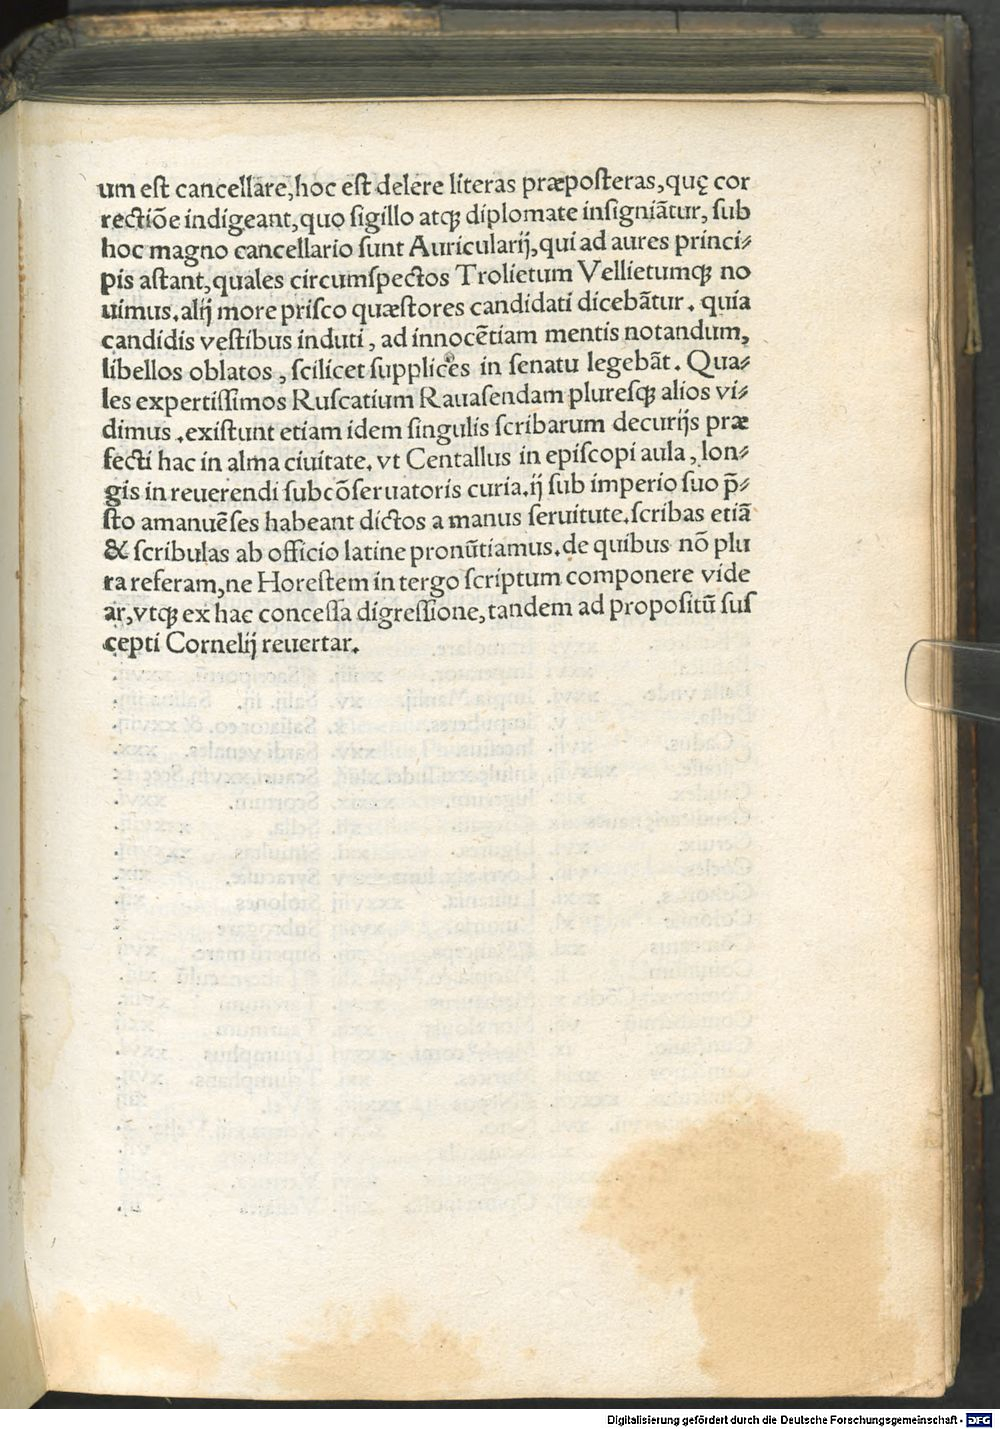 um eſt cancellare,hoc eſt delere literas præpoſteras,quę cor
rectiõe indigeant,quo ſigillo atqꝫ diplomate inſigniãtur, ſub
hoc magno cancellario ſunt Auricularij,qui ad aures princi⸗
pis aſtant,quales circumſpectos Trolietum Vellietumqꝫ no
uimus.alij more priſco quæſtores candidati dicebãtur. quia
candidis veſtibus induti, ad innocẽtiam mentis notandum,
libellos oblatos, ſcilicet ſupplices in ſenatu legebãt. Qua⸗
les expertiſſimos Ruſcatium Rauaſendam plureſqꝫ alios vi⸗
dimus.exiſtunt etiam idem ſingulis ſcribarum decurijs præ
fecti hac in alma ciuitate. vt Centallus in epiſcopi aula, lon⸗
gis in reuerendi ſubcõſeruatoris curia.ij ſub imperio ſuo p̃⸗
ſto amanuẽſes habeant dictos a manus ſeruitute.ſcribas etiã
& ſcribulas ab officio latine pronũtiamus.de quibus nõ plu
ra referam,ne Horeſtem in tergo ſcriptum componere vide
ar,vtqꝫ ex hac conceſſa digreſſione,tandem ad propoſitũ ſuſ
cepti Cornelij reuertar.
Digitalisierung gefördert durch die Deutsche Forschungsgemeinschaft - DFG